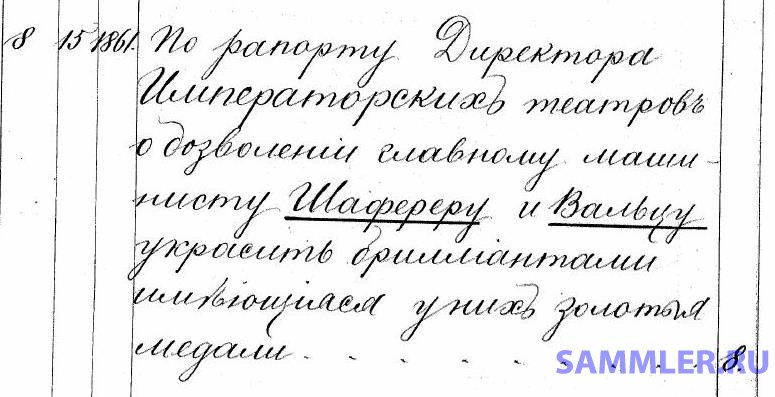 8 15 1861. По рапорту Директора
Императорскихъ театровъ
о дозволеніи главному маши-
нисту Шафереру и Вальцу
украсить брилліантами
имѣющіяся у нихъ золотыя
медали . . . . . . . . 8
SAMMLER.RU